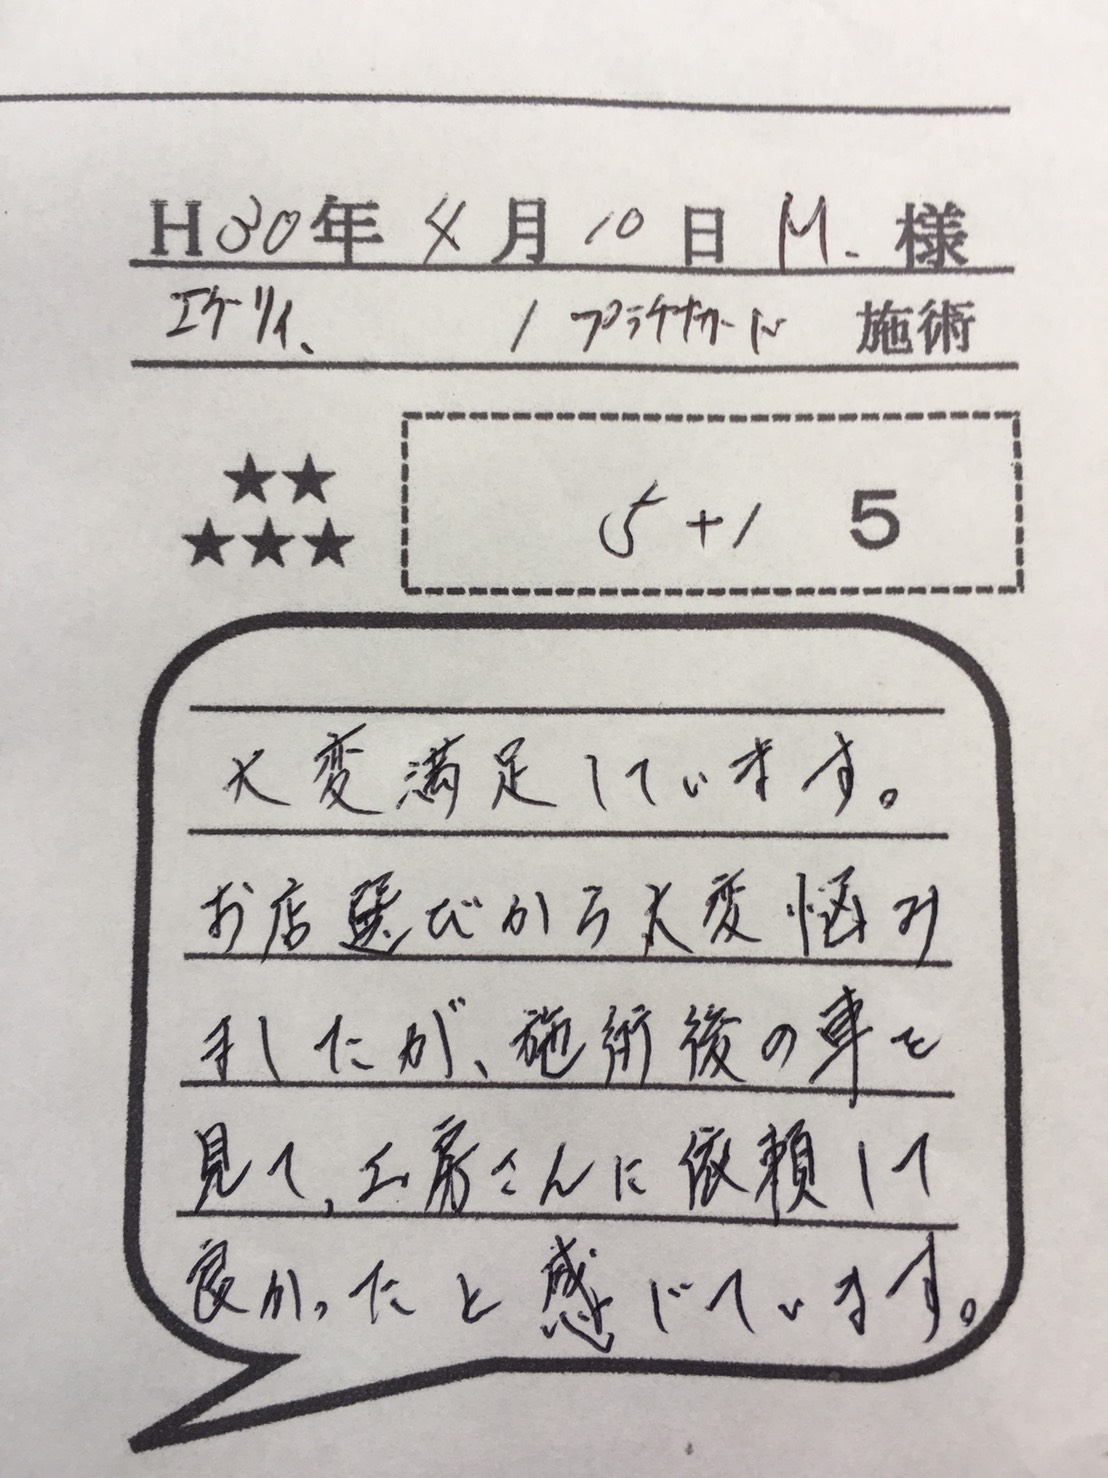 H30年 4月10日 M. 様
エヴリィ、 / プラチナガード 施術
★★
★★★
5+1 5
大変満足しています。
お店選びから大変悩み
ましたが、施術後の車を
見て、工房さんに依頼して
良かったと感じています。